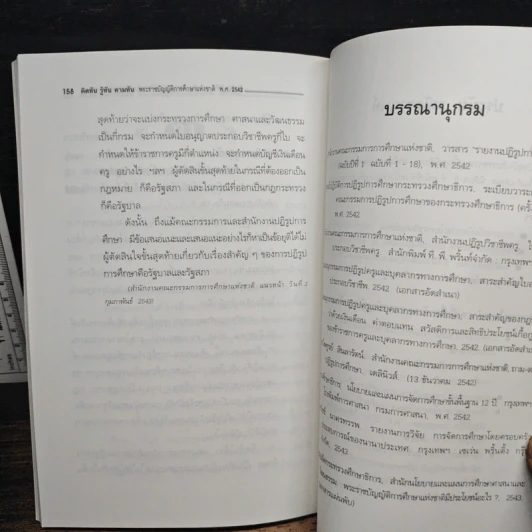 158 คิดทัน รู้ทัน ตามทัน พระราชบัญญัติการศึกษาแห่งชาติ พ.ศ. 2542
สุดท้ายว่าจะแบ่งกระทรวงการศึกษา ศาสนาและวัฒนธรรม
เป็นกี่กรม จะกำหนดใบอนุญาตประกอบวิชาชีพครูกี่ใบ จะ
กำหนดให้ข้าราชการครูมีกี่ตำแหน่ง จะกำหนดบัญชีเงินเดือน
ครู อย่างไร ฯลฯ ผู้ตัดสินขั้นสุดท้ายในกรณีที่ต้องออกเป็น
กฎหมาย ก็คือรัฐสภา และในกรณีที่ออกเป็นกฎกระทรวง
ก็คือรัฐบาล
ดังนั้น ถึงแม้คณะกรรมการและสำนักงานปฏิรูปการ
ศึกษา มีข้อเสนอและเสนอแนะอย่างไรก็หาเป็นข้อยุติได้ไม่
ผู้ตัดสินใจขั้นสุดท้ายเกี่ยวกับเรื่องสำคัญ ๆ ของการปฏิรูป
การศึกษาคือรัฐบาลและรัฐสภา
(สำนักงานคณะกรรมการการศึกษาแห่งชาติ แนวหน้า วันที่ 2
กุมภาพันธ์ 2542)
บรรณานุกรม
คณะกรรมการการศึกษาแห่งชาติ, วารสาร "รายงานปฏิรูป
(ฉบับปีที่ 1 ฉบับที่ 1 - 16), พ.ศ. 2542
ปฏิรูปการศึกษากระทรวงศึกษาธิการ, ระเบียบวาระ
คณะกรรมการปฏิรูปการศึกษาของกระทรวงศึกษาธิการ
พ.ศ. 2542
คณะกรรมการการศึกษาแห่งชาติ, สำนักงานปฏิรูปวิชาชีพครู,
ประกอบวิชาชีพครู สำนักพิมพ์ ที. พี. พริ้นท์จำกัด : กรุงเทพฯ
ปฏิรูปครูและบุคลากรทางการศึกษา, สาระสำคัญ
ประกอบวิชาชีพ, 2542 (เอกสารอัดสำเนา)
ปฏิรูปครูและบุคลากรทางการศึกษา, สาระสำคัญของ
ว่าด้วยเงินเดือน ค่าตอบแทน สวัสดิการและสิทธิประโยชน์เกื้อกูล
ข้าราชการครูและบุคลากรทางการศึกษา, 2542 (เอกสารอัด
สินลารัตน์, สำนักงานคณะกรรมการการศึกษาแห่งชาติ,
ปฏิรูปการศึกษา เดลินิวส์, (13 ธันวาคม 2542)
นโยบายและแผนการจัดการศึกษาขั้นพื้นฐาน 12 ปี กรุงเทพฯ
พิมพ์การศาสนา กรมการศาสนา, พ.ศ. 2542
รายงานการวิจัย การจัดการศึกษาโดยครอบครัว
ประสบการณ์ของนานาประเทศ กรุงเทพฯ : เซเว่น พริ้นติ้ง
2542
กระทรวงศึกษาธิการ, สำนักนโยบายและแผนการศึกษา ศาสนา และ
วัฒนธรรม พระราชบัญญัติการศึกษาแห่งชาติมีประโยชน์อะไร ?, 2543